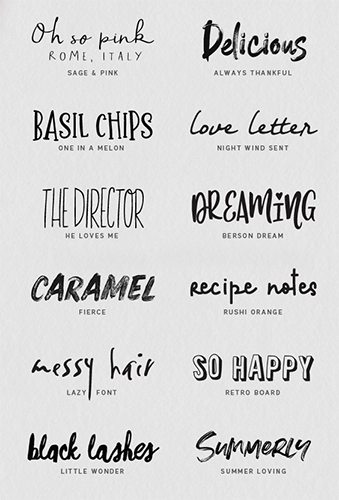 Oh so pink
ROME, ITALY
SAGE & PINK
Delicious
ALWAYS THANKFUL
BASIL CHIPS
ONE IN A MELON
love letter
NIGHT WIND SENT
THE DIRECTOR
HE LOVES ME
DREAMiNG
BERSON DREAM
CARAMEL
FIERCE
recipe notes
RUSHI ORANGE
messy hair
LAZY FONT
SO HAPPY
RETRO BOARD
black lashes
LITTLE WONDER
SUMMERLY
SUMMER LOVING